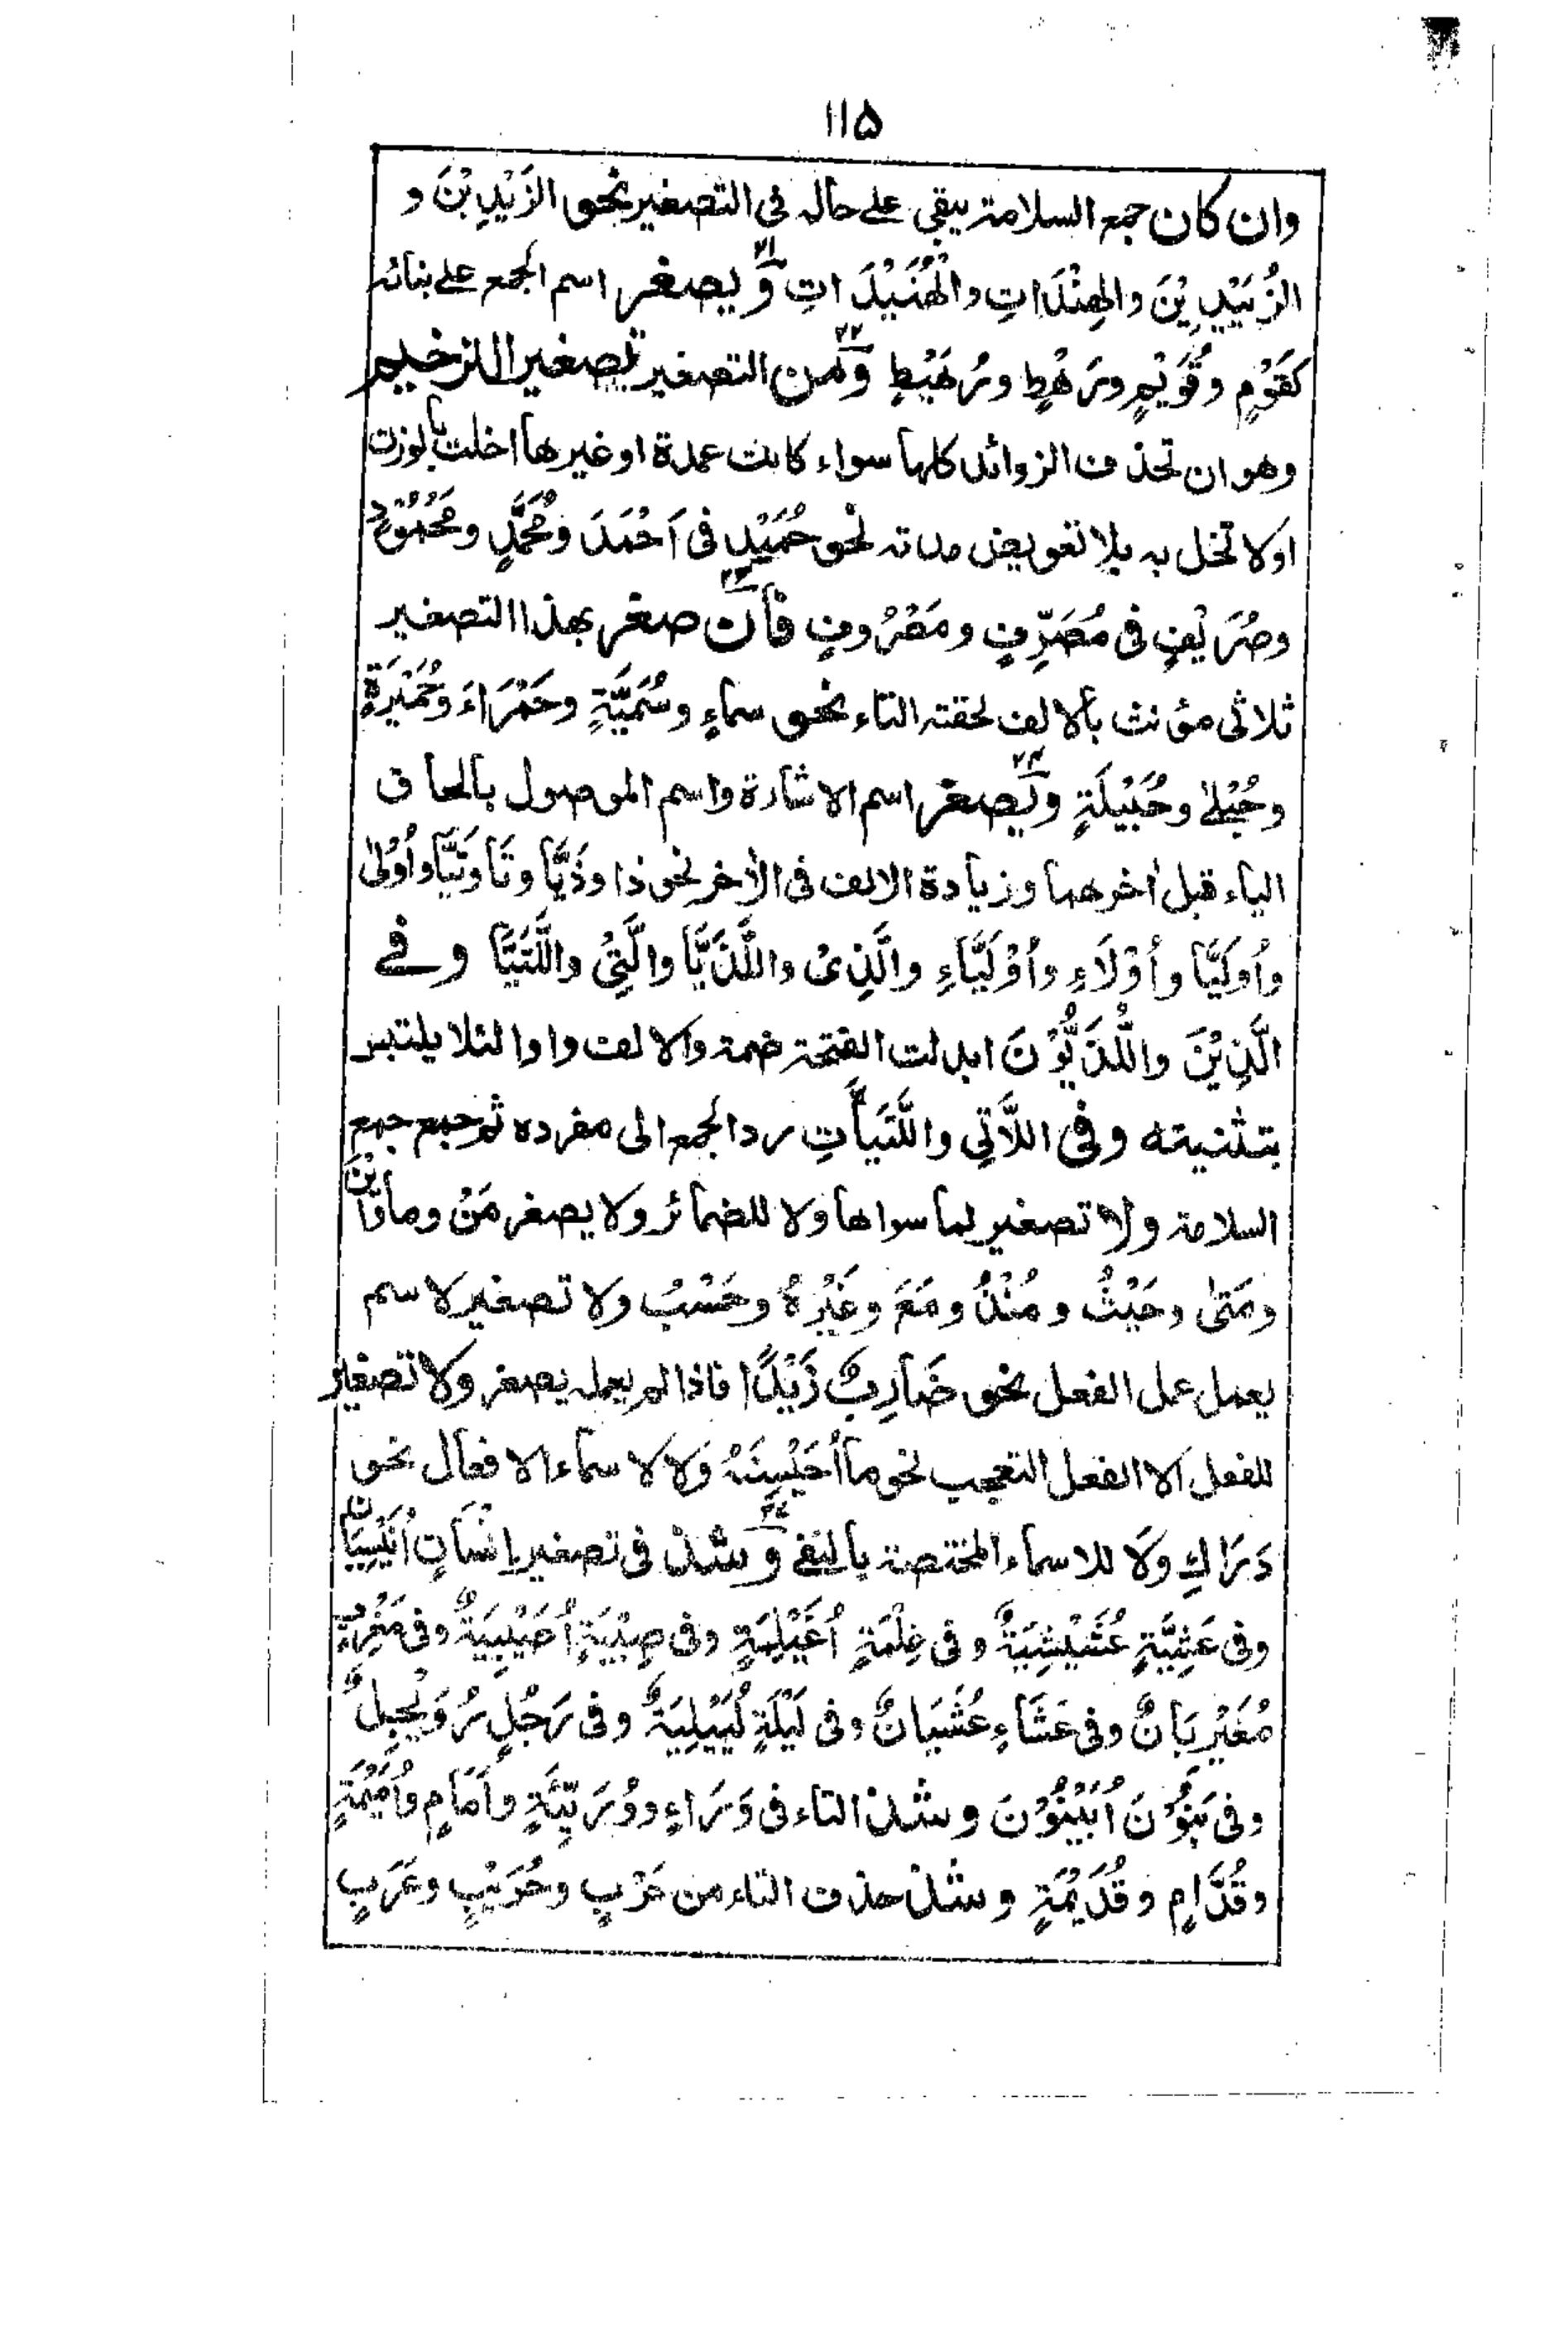 ۱۱۵
وان كان جمع السلامة يبقى على حاله فى التصغير نحو الزَيْدِيْنَ و
الزُبَيْدِيْنَ والهِنْدَاتِ والْهُنَيْدَاتِ وَيصغر اسم الجمع على بنائه
كَقَوْمٍ وقُوَيْمٍ ورَهْطٍ ورُهَيْطٍ وَمن التصغير تصغير الترخيم
وهو ان تحذف الزوائد كلها سواء كانت عمدة او غيرها اخلت بالوزن
اولا تخل به بلا تعويض مدته نحو حُمَيْدٍ فى اَحْمَدَ ومُحَمَّدٍ ومَحْمُوْدٍ
وصُرَيْفٍ فى مُصَرِّفٍ ومَصْرُوفٍ فَان صغر بهذا التصغير
ثلاثى مؤنث بالالف لحقته التاء نحو سماءٍ وسُمَيَّةٍ وحَمْرَاءَ وحُمَيْرَةٍ
وحُبْلىٰ وحُبَيْلَةٍ وَيصغر اسم الاشارة واسم الموصول بالحاق
الياء قبل اٰخرهما وزيادة الالف فى الاٰخر نحو ذا وذَيَّا وتَا وتَيَّا واُوْلىٰ
واُوليَّا واُوْلَاءِ واُوْلَيَّاءِ والَّذِىْ واللَّذَيَّا والَّتِىْ واللَّتَيَّا وفى
الَّذِيْنَ واللَّذَيُّوْنَ ابدلت الفتحة ضمة والالف واوا لئلا يلتبس
بتثنيته وفى اللَّاتِي واللَّتَيَّاتِ رد الجمع الى مفرده ثم جمع جمع
السلامة ولا تصغير لما سواها ولا للضمائر ولا يصغر مَنْ وما واَيْنَ
ومَتىٰ وحَيْثُ ومُنْذُ ومَعَ وغَيْرُهُ وحَسْبُ ولا تصغير لاسم
يعمل عمل الفعل نحو ضَارِبٌ زَيْدًا فاذا لم يعمله يصغر ولا تصغير
للفعل الا الفعل التعجب نحو ما اُحَيْسِنَهُ ولا لاسماء الافعال نحو
دَرَاكِ ولا للاسماء المختصة بالنفى وَشذ فى تصغير اِنْسَانٍ اُنَيْسِيَانٌ
وفى عَشِيَّةٍ عُشَيْشِيَةٌ وفى غِلْمَةٍ اُغَيْلِمَةٍ وفى صِبْيَةٍ اُصَيْبِيَةٌ وفى مَغْرِبٍ
مُغَيْرِبَانٌ وفى عَشَاءٍ عُشَيَانٌ وفى لَيْلَةٍ لُيَيْلِيَةٌ وفى رَجُلٍ رُوَيْجِلٌ
وفى بَنُوْنَ اُبَيْنُوْنَ وشذ التاء فى وَرَاءٍ ووُرَيِّئَةٍ واَمَامٍ واُمَيِّمَةٍ
وقُدَّامٍ وقُدَيْمَةٍ وشذ حذف التاء من حَرْبٍ وحُرَيْبٍ وعَرَبٍ